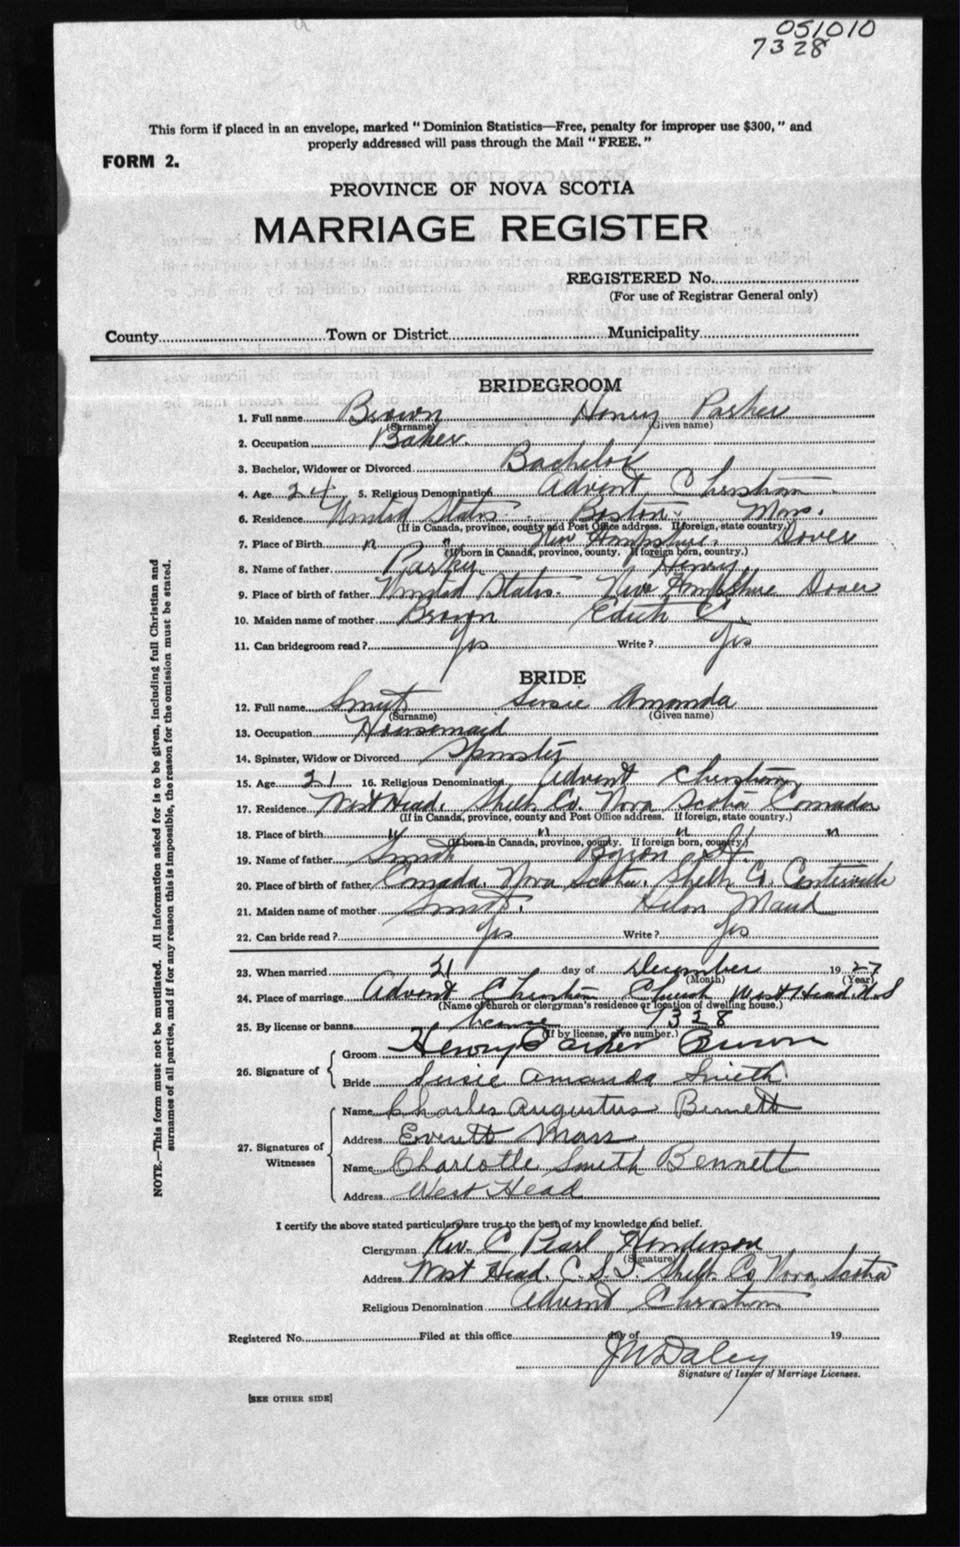 051010
7328
This form if placed in an envelope, marked "Dominion Statistics—Free, penalty for improper use $300," and
properly addressed will pass through the Mail "FREE."
FORM 2.
PROVINCE OF NOVA SCOTIA
MARRIAGE REGISTER
REGISTERED No.
(For use of Registrar General only)
County Town or District Municipality
BRIDEGROOM
1. Full name Brown Henry Parker
(Surname) (Given name)
2. Occupation Baker.
3. Bachelor, Widower or Divorced Bachelor
4. Age 24 5. Religious Denomination Advent Christian
6. Residence United States. Boston. Mass.
(If in Canada, province, county and Post Office address. If foreign, state country.)
7. Place of Birth " " New Hampshire. Dover
(If born in Canada, province, county. If foreign born, country.)
8. Name of father Parker Henry
9. Place of birth of father United States. New Hampshire Dover
10. Maiden name of mother Brown Edith C.
11. Can bridegroom read? Yes Write? Yes
BRIDE
12. Full name Smith Susie Amanda
(Surname) (Given name)
13. Occupation Housemaid
14. Spinster, Widow or Divorced Spinster
15. Age 21 16. Religious Denomination Advent Christian
17. Residence West Head. Shelb. Co. Nova Scotia Canada
(If in Canada, province, county and Post Office address. If foreign, state country.)
18. Place of birth " " " "
(If born in Canada, province, county. If foreign born, country.)
19. Name of father Smith Byron
20. Place of birth of father Canada. Nova Scotia. Shelb. Co. Centreville
21. Maiden name of mother Smith. Maud
22. Can bride read? Yes Write? Yes
23. When married 21 day of December 1927
(Month) (Year)
24. Place of marriage Advent Christian Church West Head N.S
(Name of church or clergyman's residence or location of dwelling house.)
25. By license or banns license 7328
(If by license, give number.)
26. Signature of
Groom Henry Parker Brown
Bride Susie Amanda Smith
27. Signatures of Witnesses
Name Charles Augustus Bennett
Address Everett Mass
Name Charlotte Smith Bennett
Address West Head
I certify the above stated particulars are true to the best of my knowledge and belief.
Clergyman Rev. C Pearl Henderson
(Signature)
Address West Head. C.S.I. Shelb. Co Nova Scotia
Religious Denomination Advent Christian
Registered No. Filed at this office day of 19
J W Daley
Signature of Issuer of Marriage Licenses.
[SEE OTHER SIDE]
NOTE.—This form must not be mutilated. All information asked for is to be given, including full Christian and
surnames of all parties, and if for any reason this is impossible, the reason for the omission must be stated.